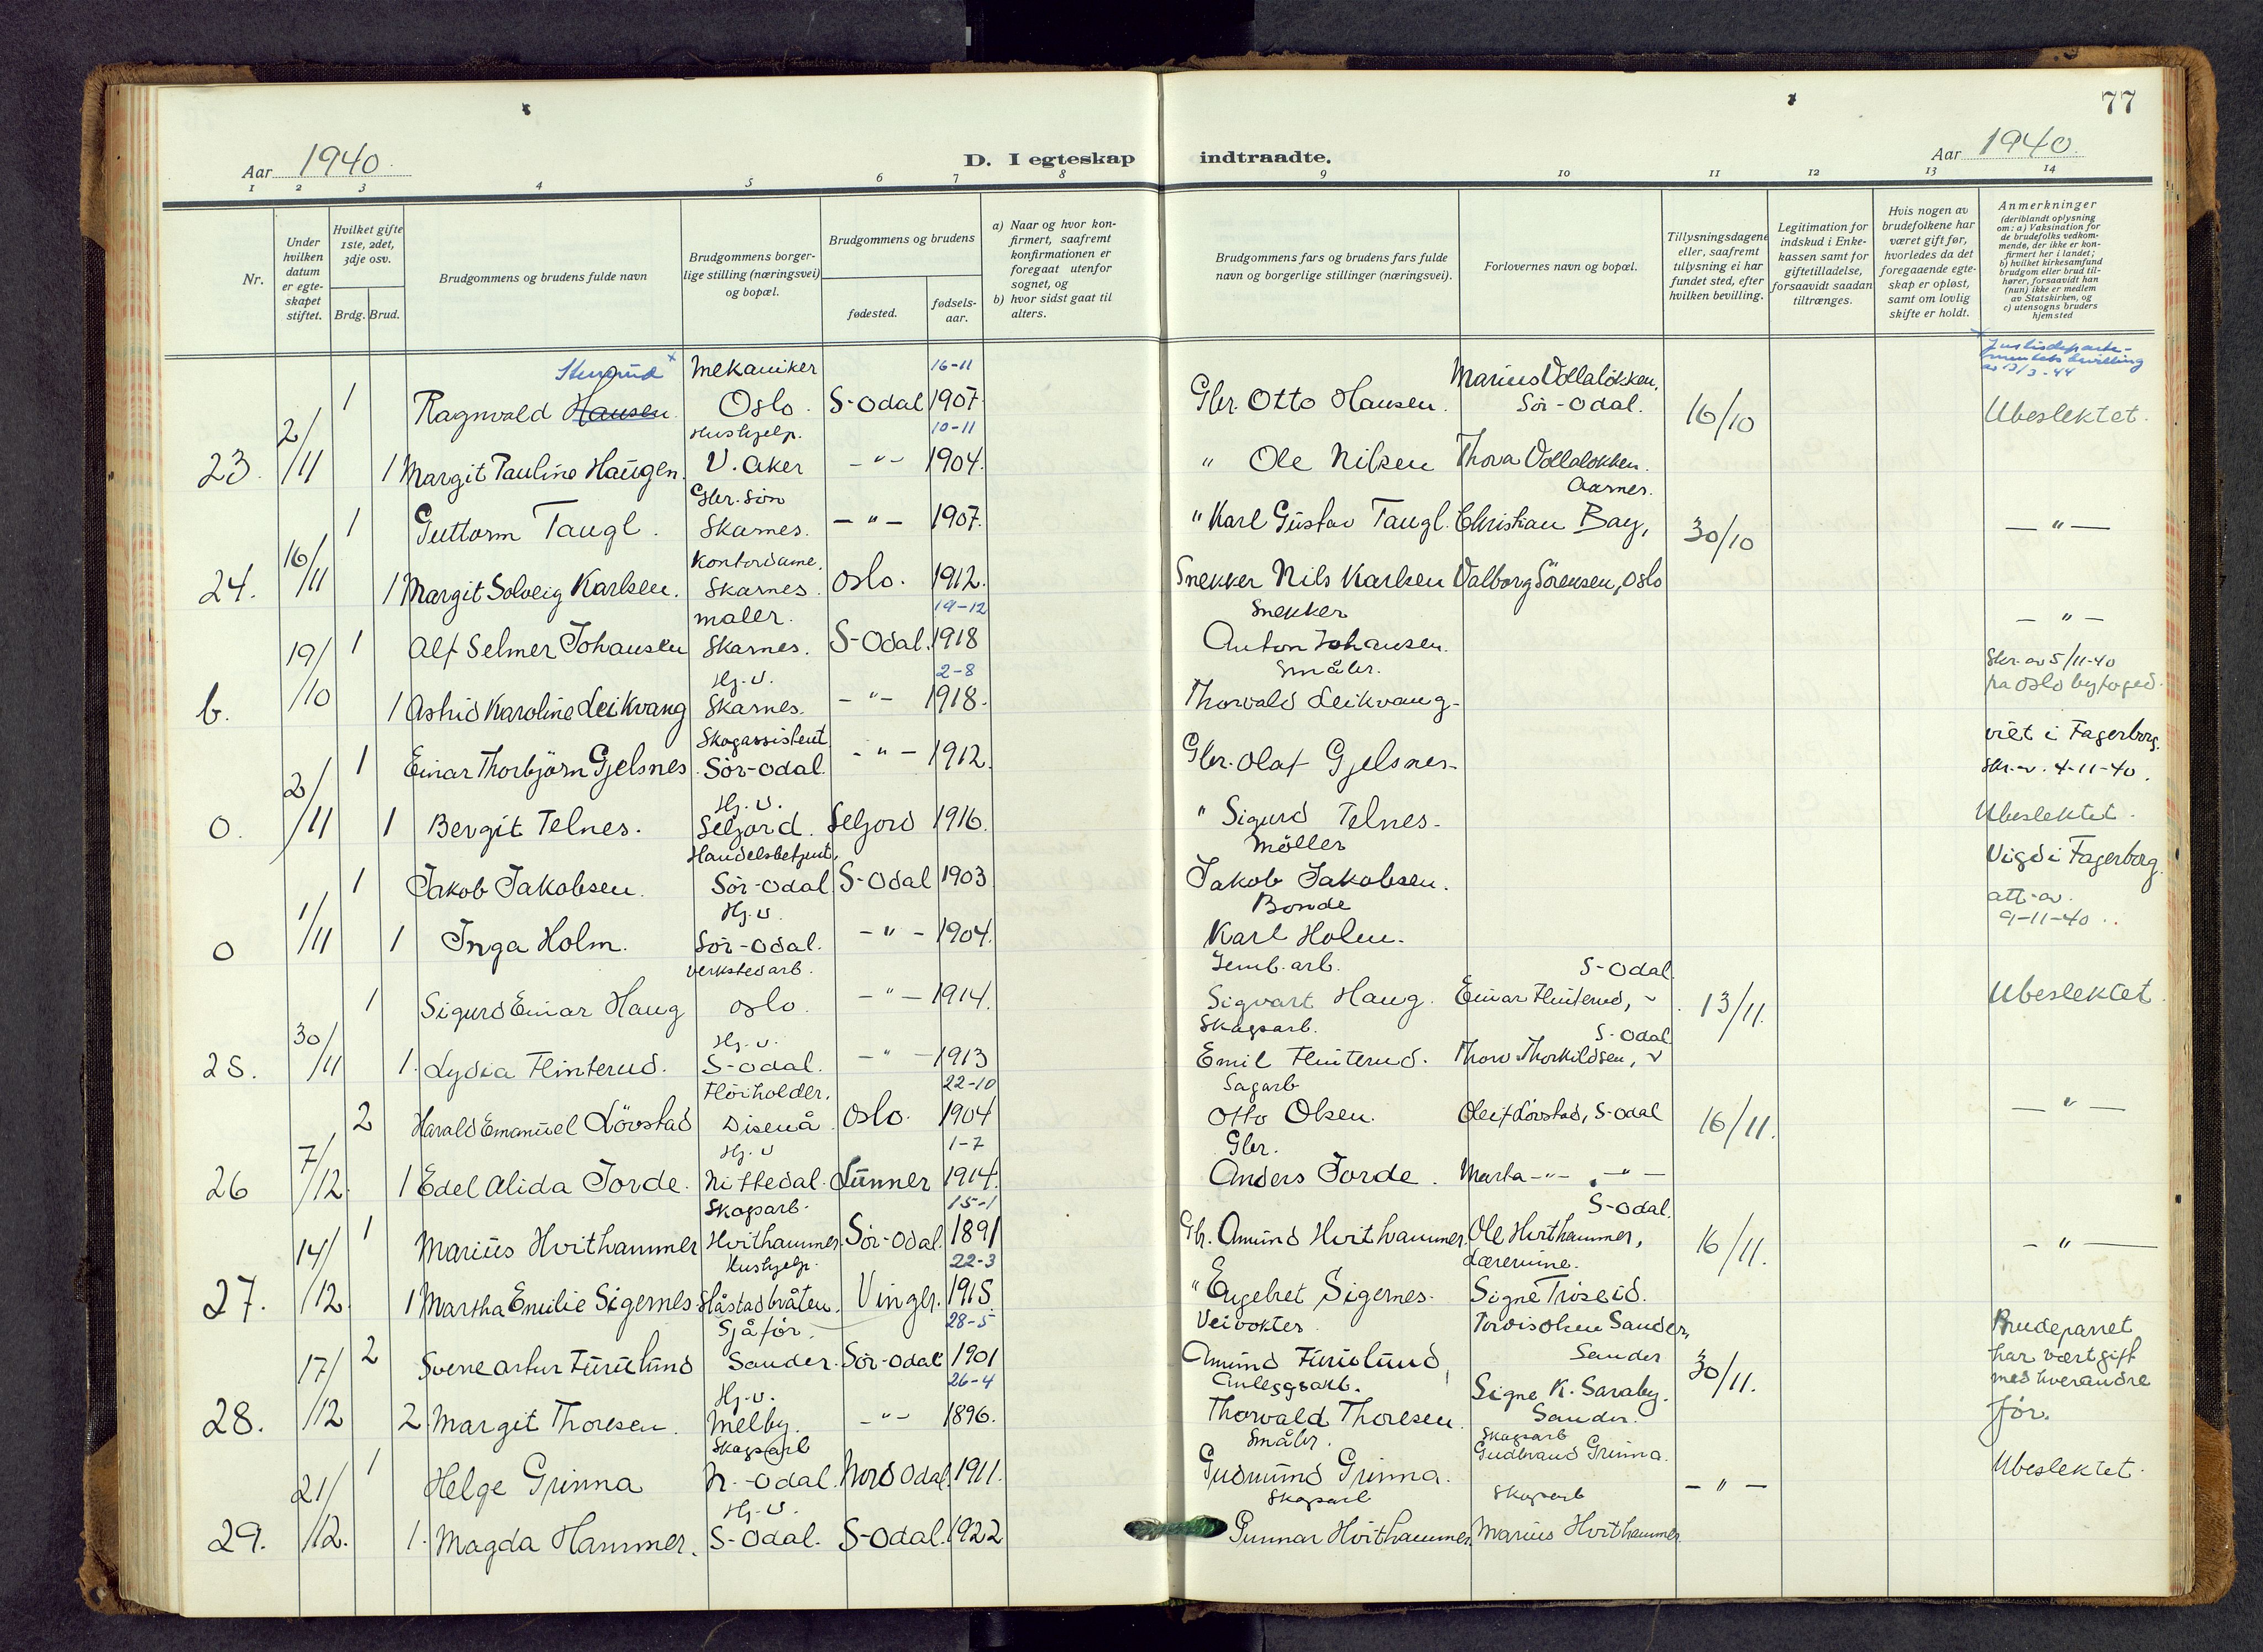 77
Aar 1940.
D. I egteskap indtraadte.
Aar 1940.
1 2 3 4 5 6 7 8 9 10 11 12 13 14
Nr.
Under hvilken datum er egte-skapet stiftet.
Hvilket gifte 1ste, 2det, 3dje osv.
Brdg. Brud.
Brudgommens og brudens fulde navn
Brudgommens borger-lige stilling (næringsvei) og bopæl.
Brudgommens og brudens
fødested.
fødsels-aar.
a) Naar og hvor kon-firmert, saafremt konfirmationen er foregaat utenfor sognet, og
b) hvor sidst gaat til alters.
Brudgommens fars og brudens fars fulde navn og borgerlige stillinger (næringsvei).
Forlovernes navn og bopæl.
Tillysningsdagene eller, saafremt tillysning ei har fundet sted, efter hvilken bevilling.
Legitimation for indskud i Enke-kassen samt for giftetilladelse, forsaavidt saadan tiltrænges.
Hvis nogen av brudefolkene har været gift før, hvorledes da det foregaaende egte-skap er opløst, samt om lovlig skifte er holdt.
Anmerkninger
(deriblandt oplysning om: a) Vaksination for de brudefolks vedkom-mende, der ikke er kon-firmert her i landet; b) hvilket kirkesamfund brudgom eller brud til-hører, forsaavidt han (hun) ikke er medlem av Statskirken, og c) utensogns bruders hjemsted
Mekaniker 16-11 Marius Vollaløkken, Justisdeparte-mentets bevilling av 13/3-44
1 Ragnvald Hausen Oslo. S-Odal 1907. Gbr. Otto Hansen. Sør-Odal. 16/10 Ubeslektet.
Hushjelp. 10-11
23. 2/11 1 Margit Pauline Haugen. V. Aker -"- 1904. " Ole Nilsen Thora Vollaløkken.
Gbr. søn Aarnes.
1 Guttorm Taugl. Skarnes. -"- 1907. " Karl Gustav Taugl. Christian Bay, 30/10 -"-
Kontordame.
24. 16/11 1 Margit Solveig Karlsen. Skarnes. Oslo. 1912. Snekker Nils Karlsen Valborg Sørensen, Oslo
maler. 19-12 Snekker -"-
1 Alf Selmer Johansen Skarnes. S-Odal. 1918 Anton Johansen.
Hj. v. 2-8 Småbr. Skr. av 5/11-40
b. 19/10 1 Astrid Karoline Leikvang Skarnes. -"- 1918. Thorvald Leikvang- fra Oslo byfoged.
Skogassistent
1 Einar Thorbjørn Gjelsnes. Sør-Odal. -"- 1912. Gbr. Olaf Gjelsnes- viet i Fagerborg. skr. av. 4-11-40.
Hj. v.
0. 2/11 1 Bergit Telnes. Seljord. Seljord 1916. " Sigurd Telnes- Ubeslektet.
Handelsbetjent, Møller
1 Jakob Jakobsen. Sør-Odal S-Odal 1903 Jakob Jakobsen. Vigd i Fagerborg.
Hj. v. Bonde att. av.
0 1/11 1 Inga Holm. Sør-Odal. -"- 1904. Karl Holm. 9-11-40..
Verkstedarb. Jernb. arb. S-Odal
1 Sigurd Einar Haug Oslo. -"- 1914. Sigvart Haug. Einar Flinterud, 13/11. Ubeslektet.
Hj. v. Skogsarb. S-Odal
25. 30/11 1. Lydia Flinterud. S-Odal. -"- 1913 Emil Flinterud. Thorv. Thorkildsen,
Høiholder. 22-10 Sagarb
2 Harald Emanuel Løvstad Disenå. Oslo. 1904 Otto Olsen. Oleif Løvstad, S-Odal 16/11. -"-
Hj. v 1-7 Gbr.
26 7/12. 1 Edel Alida Jorde. Nittedal. Lunner 1914. Anders Jorde. Marta -"- . -"-
Skogarb. 15-1 S-Odal.
1 Marius Hvithammer Hvithammer. Sør-Odal. 1891 Gb. Amund Hvithammer. Ole Hvithammer, 16/11. -"-
Hushjelp. 22-3 Lærerinne.
27. 14/12. 1 Martha Emilie Sigernes. Håstadbråten. Vinger. 1915. " Engebret Sigernes. Signe Trøseid.
Sjåfør. 28-5 Veivokter Olsen Sander, Brudeparret
2 Sverre Artur Furulund Sander. Sør-Odal 1901 Amund Furulund, Sander 30/11. har vært gift
Hj. v. 26-4 Anleggsarb. Signe K. Saraby. med hverandre
28. 17/12 2. Margit Thoresen. Melby. -"- 1896. Thorvald Thoresen. Sander. før.
Skogsarb Småbr. Skogsarb
1 Helge Grinna N.-Odal. Nord Odal. 1911. Gudmund Grinna. Gudbrand Grinna. -"- Ubeslektet.
Hj. v. Skogsarb Skogsarb
29. 21/12. 1. Magda Hammer. S-Odal. S-Odal. 1922 Gunnar Hvithammer. Marius Hvithammer.